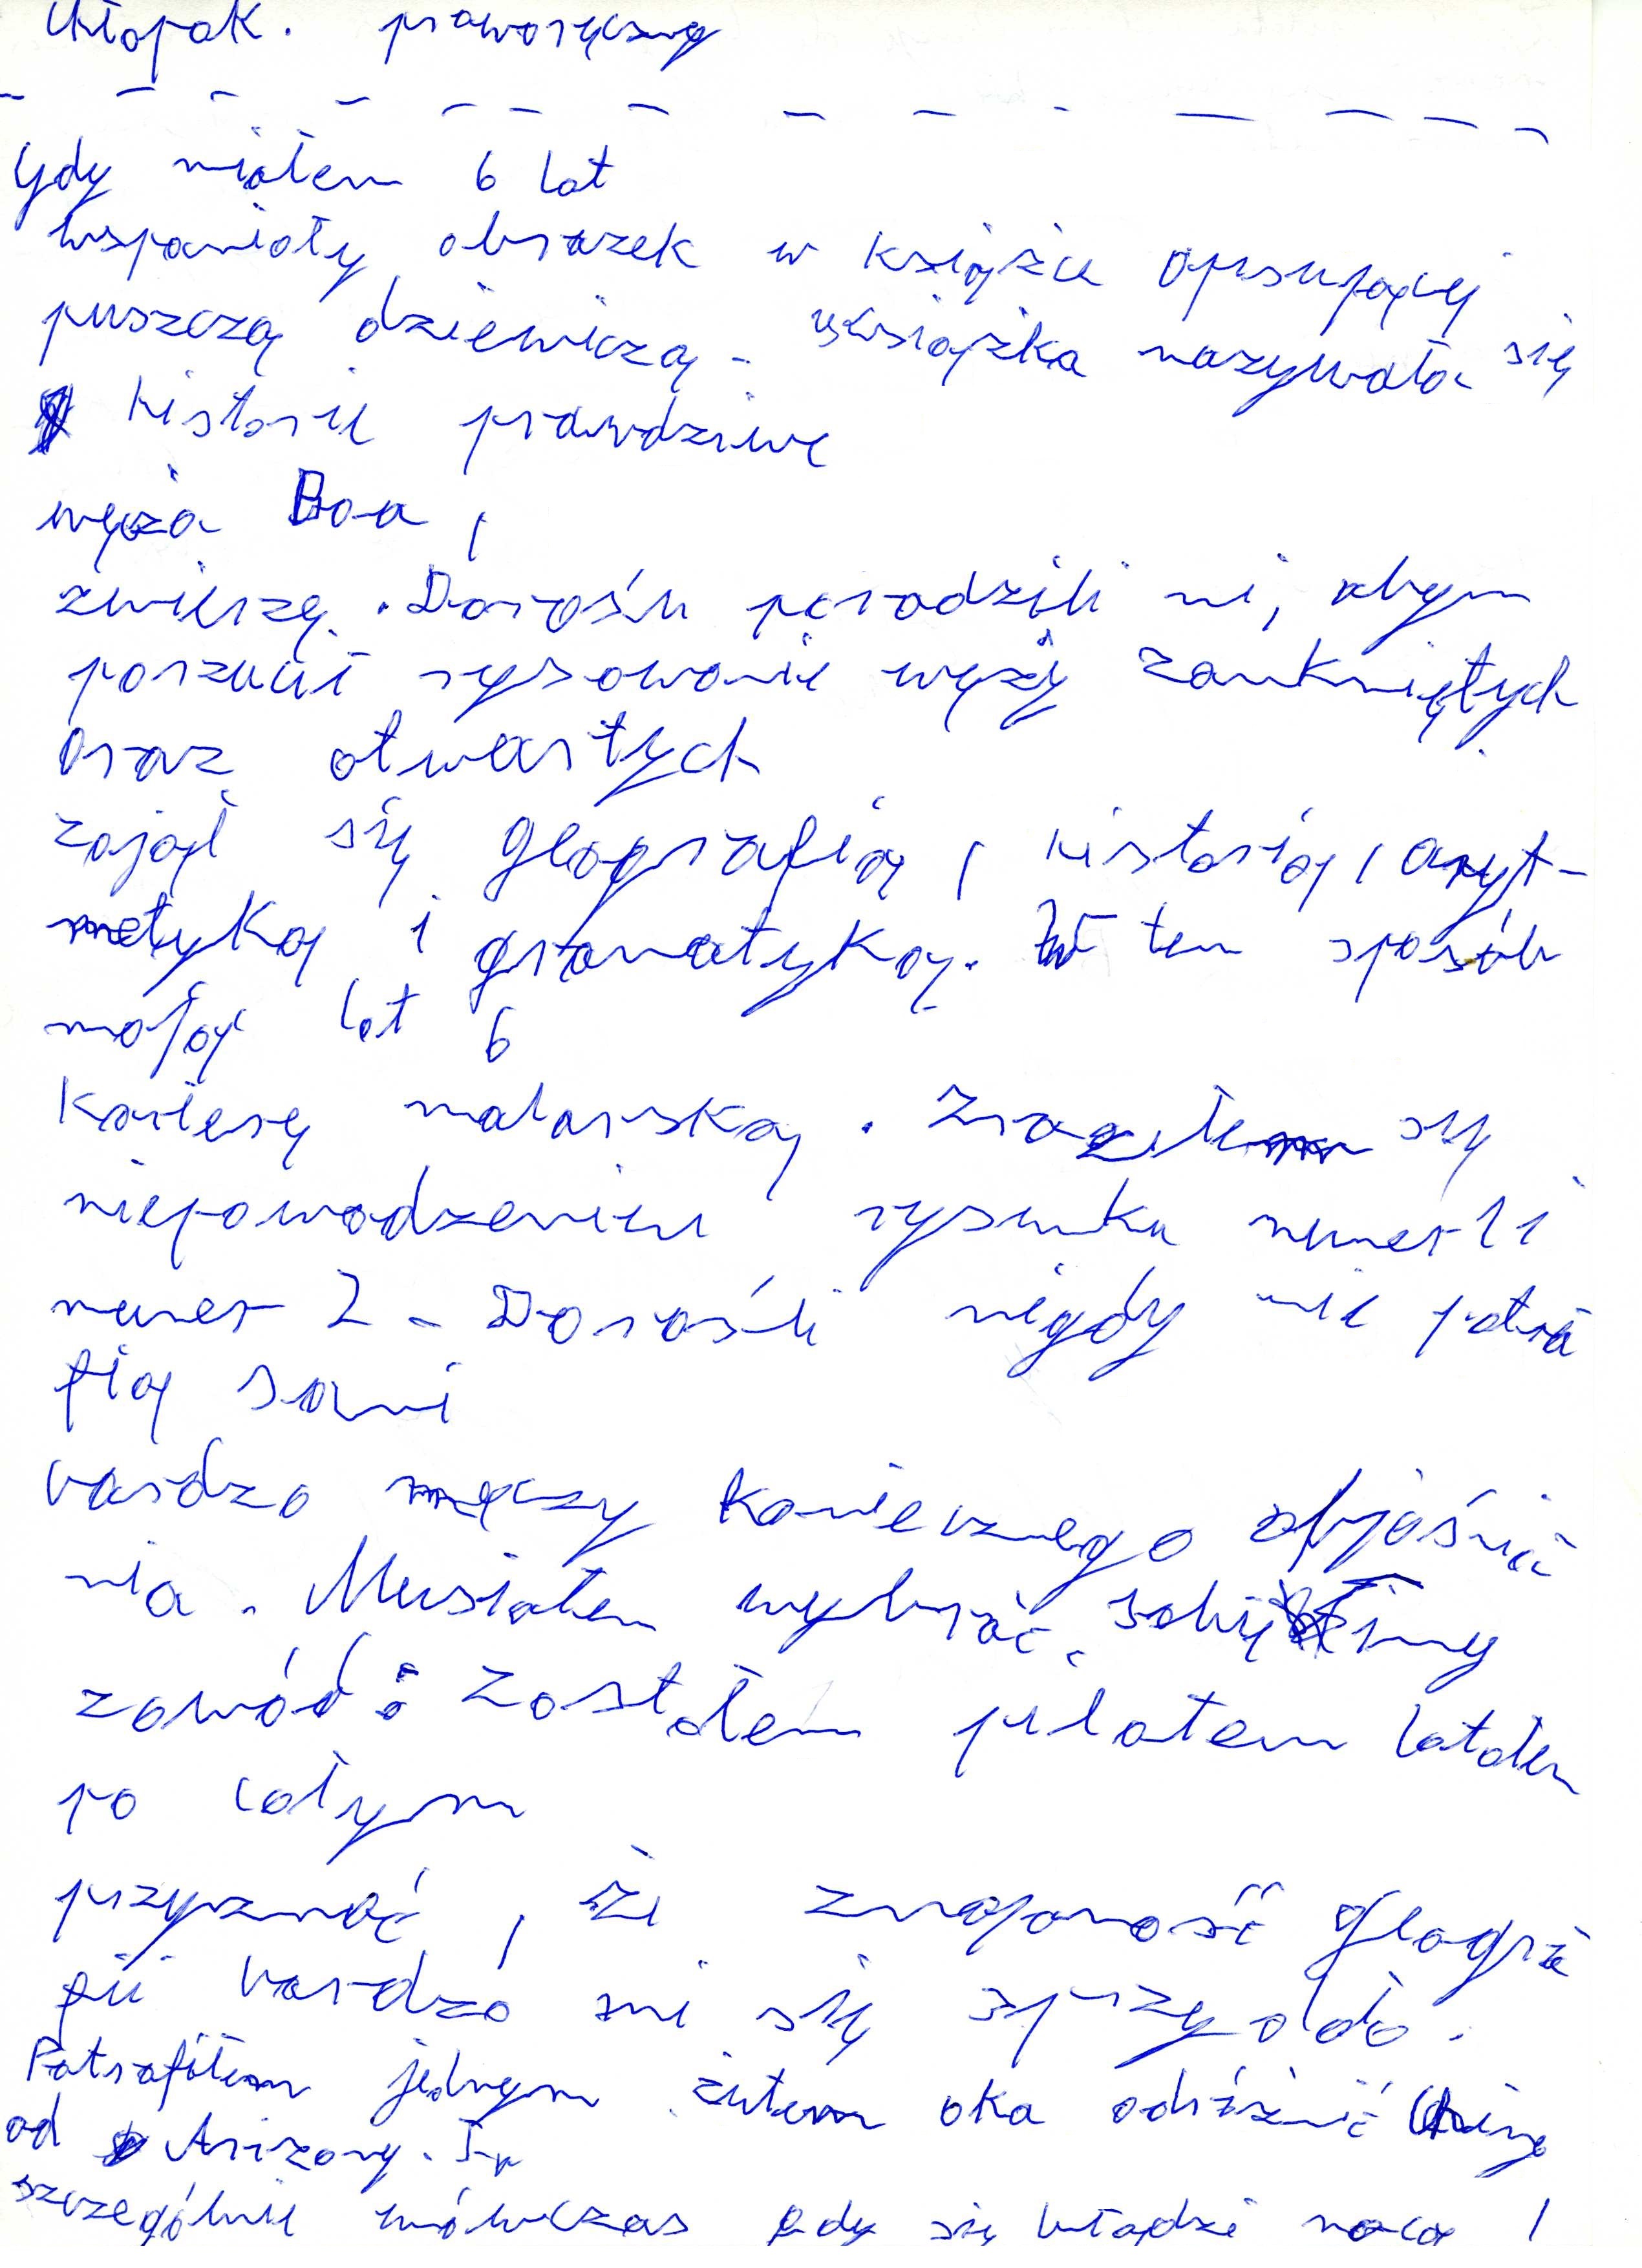 chłopak. praworęczny
Gdy miałem 6 lat
wspaniały obrazek w książce opisującej
puszczą dziewiczą. Książka nazywała się
historie prawdziwe
węża Boa,
zwierzę. Dorośli poradzili mi, abym
porzucił rysowanie węży zamkniętych
oraz otwartych
zajął się geografią, historią, aryt-
metyką i gramatyką. W ten sposób
mając lat 6
karierę malarską. się
niepowodzeniem rysunku numer 1 i
numer 2. Dorośli nigdy nie potra
fią sami
bardzo męczy koniecznego objaśnia
nia. Musiałem wybrać sobie inny
zawód: zostałem pilotem latałem
po całym
przyznać, że znajomość geogra
fii bardzo mi się przydała.
Potrafiłem jednym rzutem oka odróżnić Chiny
od Arizony.
szczególnie wówczas gdy się błądzi nocą!